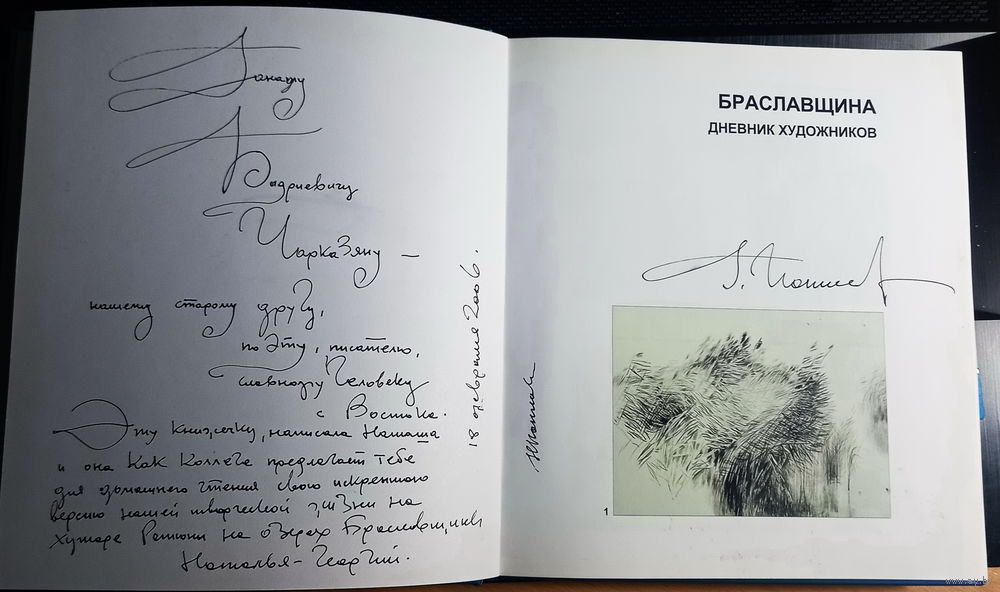 Ганаду
Бадриевичу
Чарказяну —
нашему старому другу,
поэту, писателю,
славному Человеку
с Востока.
Эту книжечку, написала Наташа
и она как коллега предлагает тебе
для домашнего чтения свою искреннюю
версию нашей творческой жизни на
хуторе на озерах Браславщины
Наталья - Георгий.
18 февраля 2006.
БРАСЛАВЩИНА
ДНЕВНИК ХУДОЖНИКОВ
1